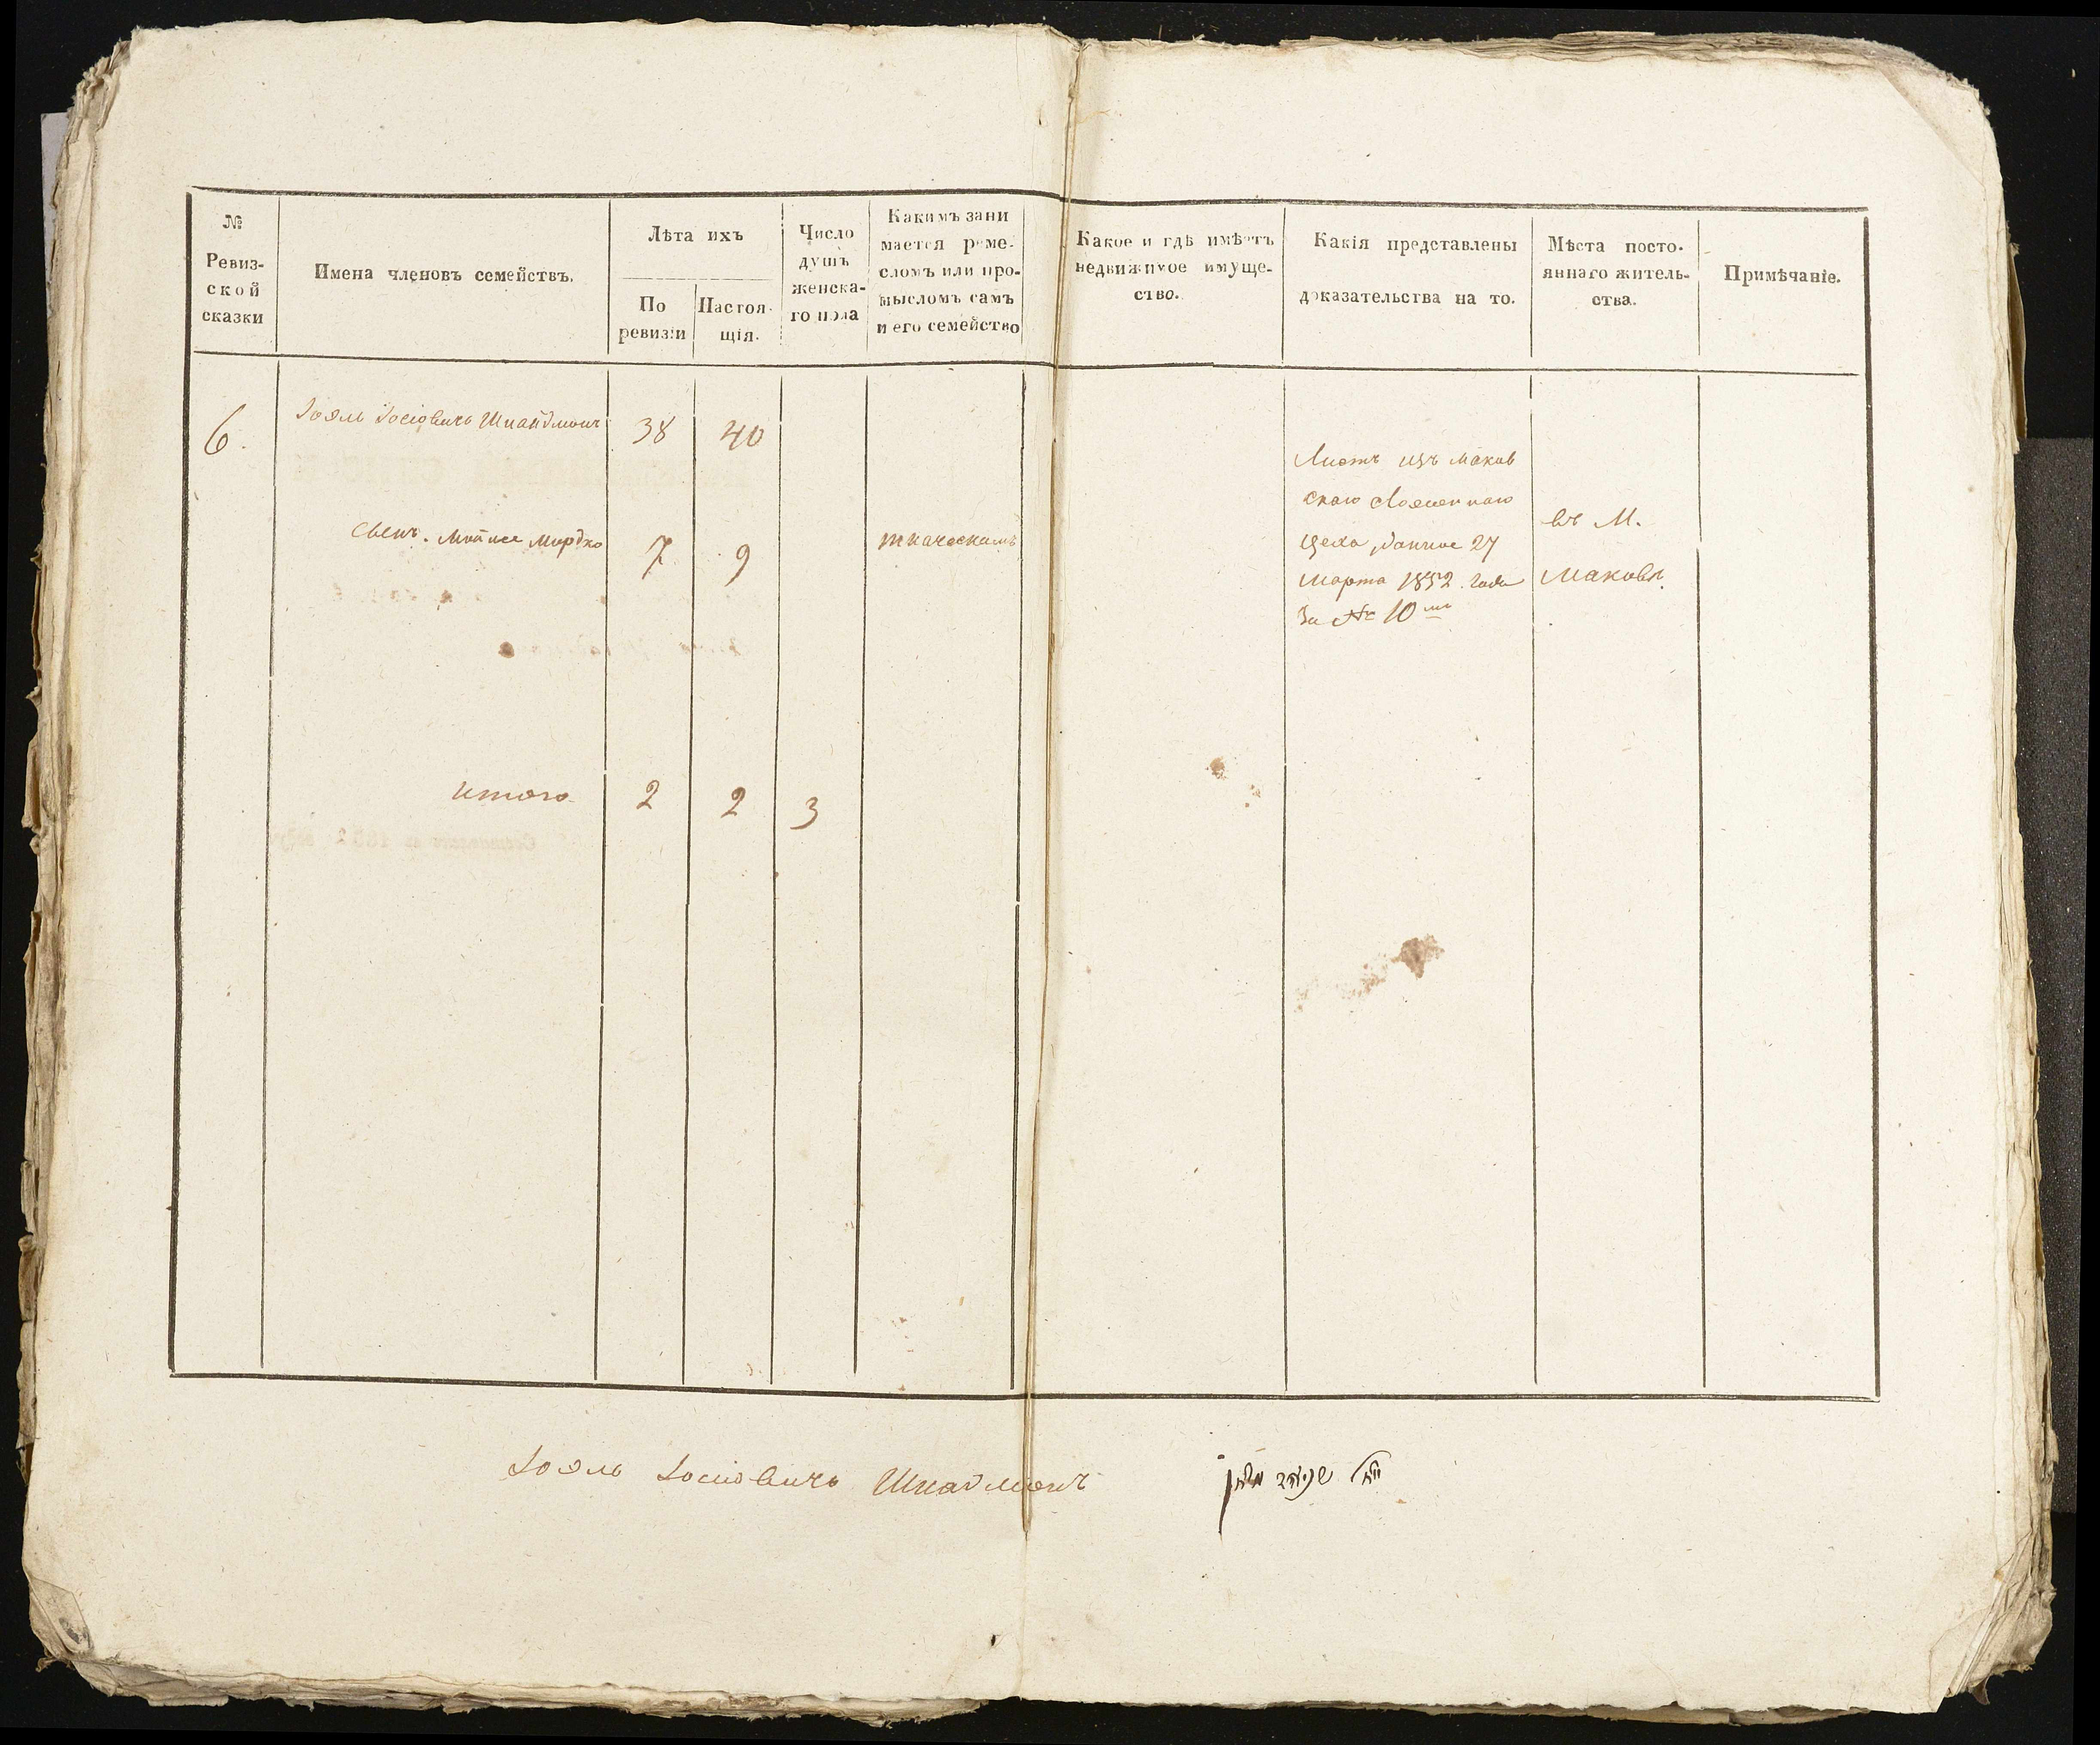 №
Ревиз-
ской
сказки
Имена членовъ семействъ.
Лѣта ихъ
По
ревизіи
Настоя-
щія.
Число
душъ
женска-
го пола
Какимъ зани
мается реме-
сломъ или про-
мысломъ самъ
и его семейство
Какое и гдѣ имѣетъ
недвижимое имуще-
ство.
Какія представлены
доказательства на то.
Мѣста посто-
яннаго житель-
ства.
Примѣчаніе.
6. Іоэль Іосіовичъ Шнайдмонъ 38 40
Сынъ. Мордко 7 9 ткаческимъ
Листъ изъ Маков
скаго
цеха, данное 27
Марта 1852 года
За № 10
въ М.
Маковъ.
итого 2 2 3
Іоэль Іосіовичъ Шнайдмонъ